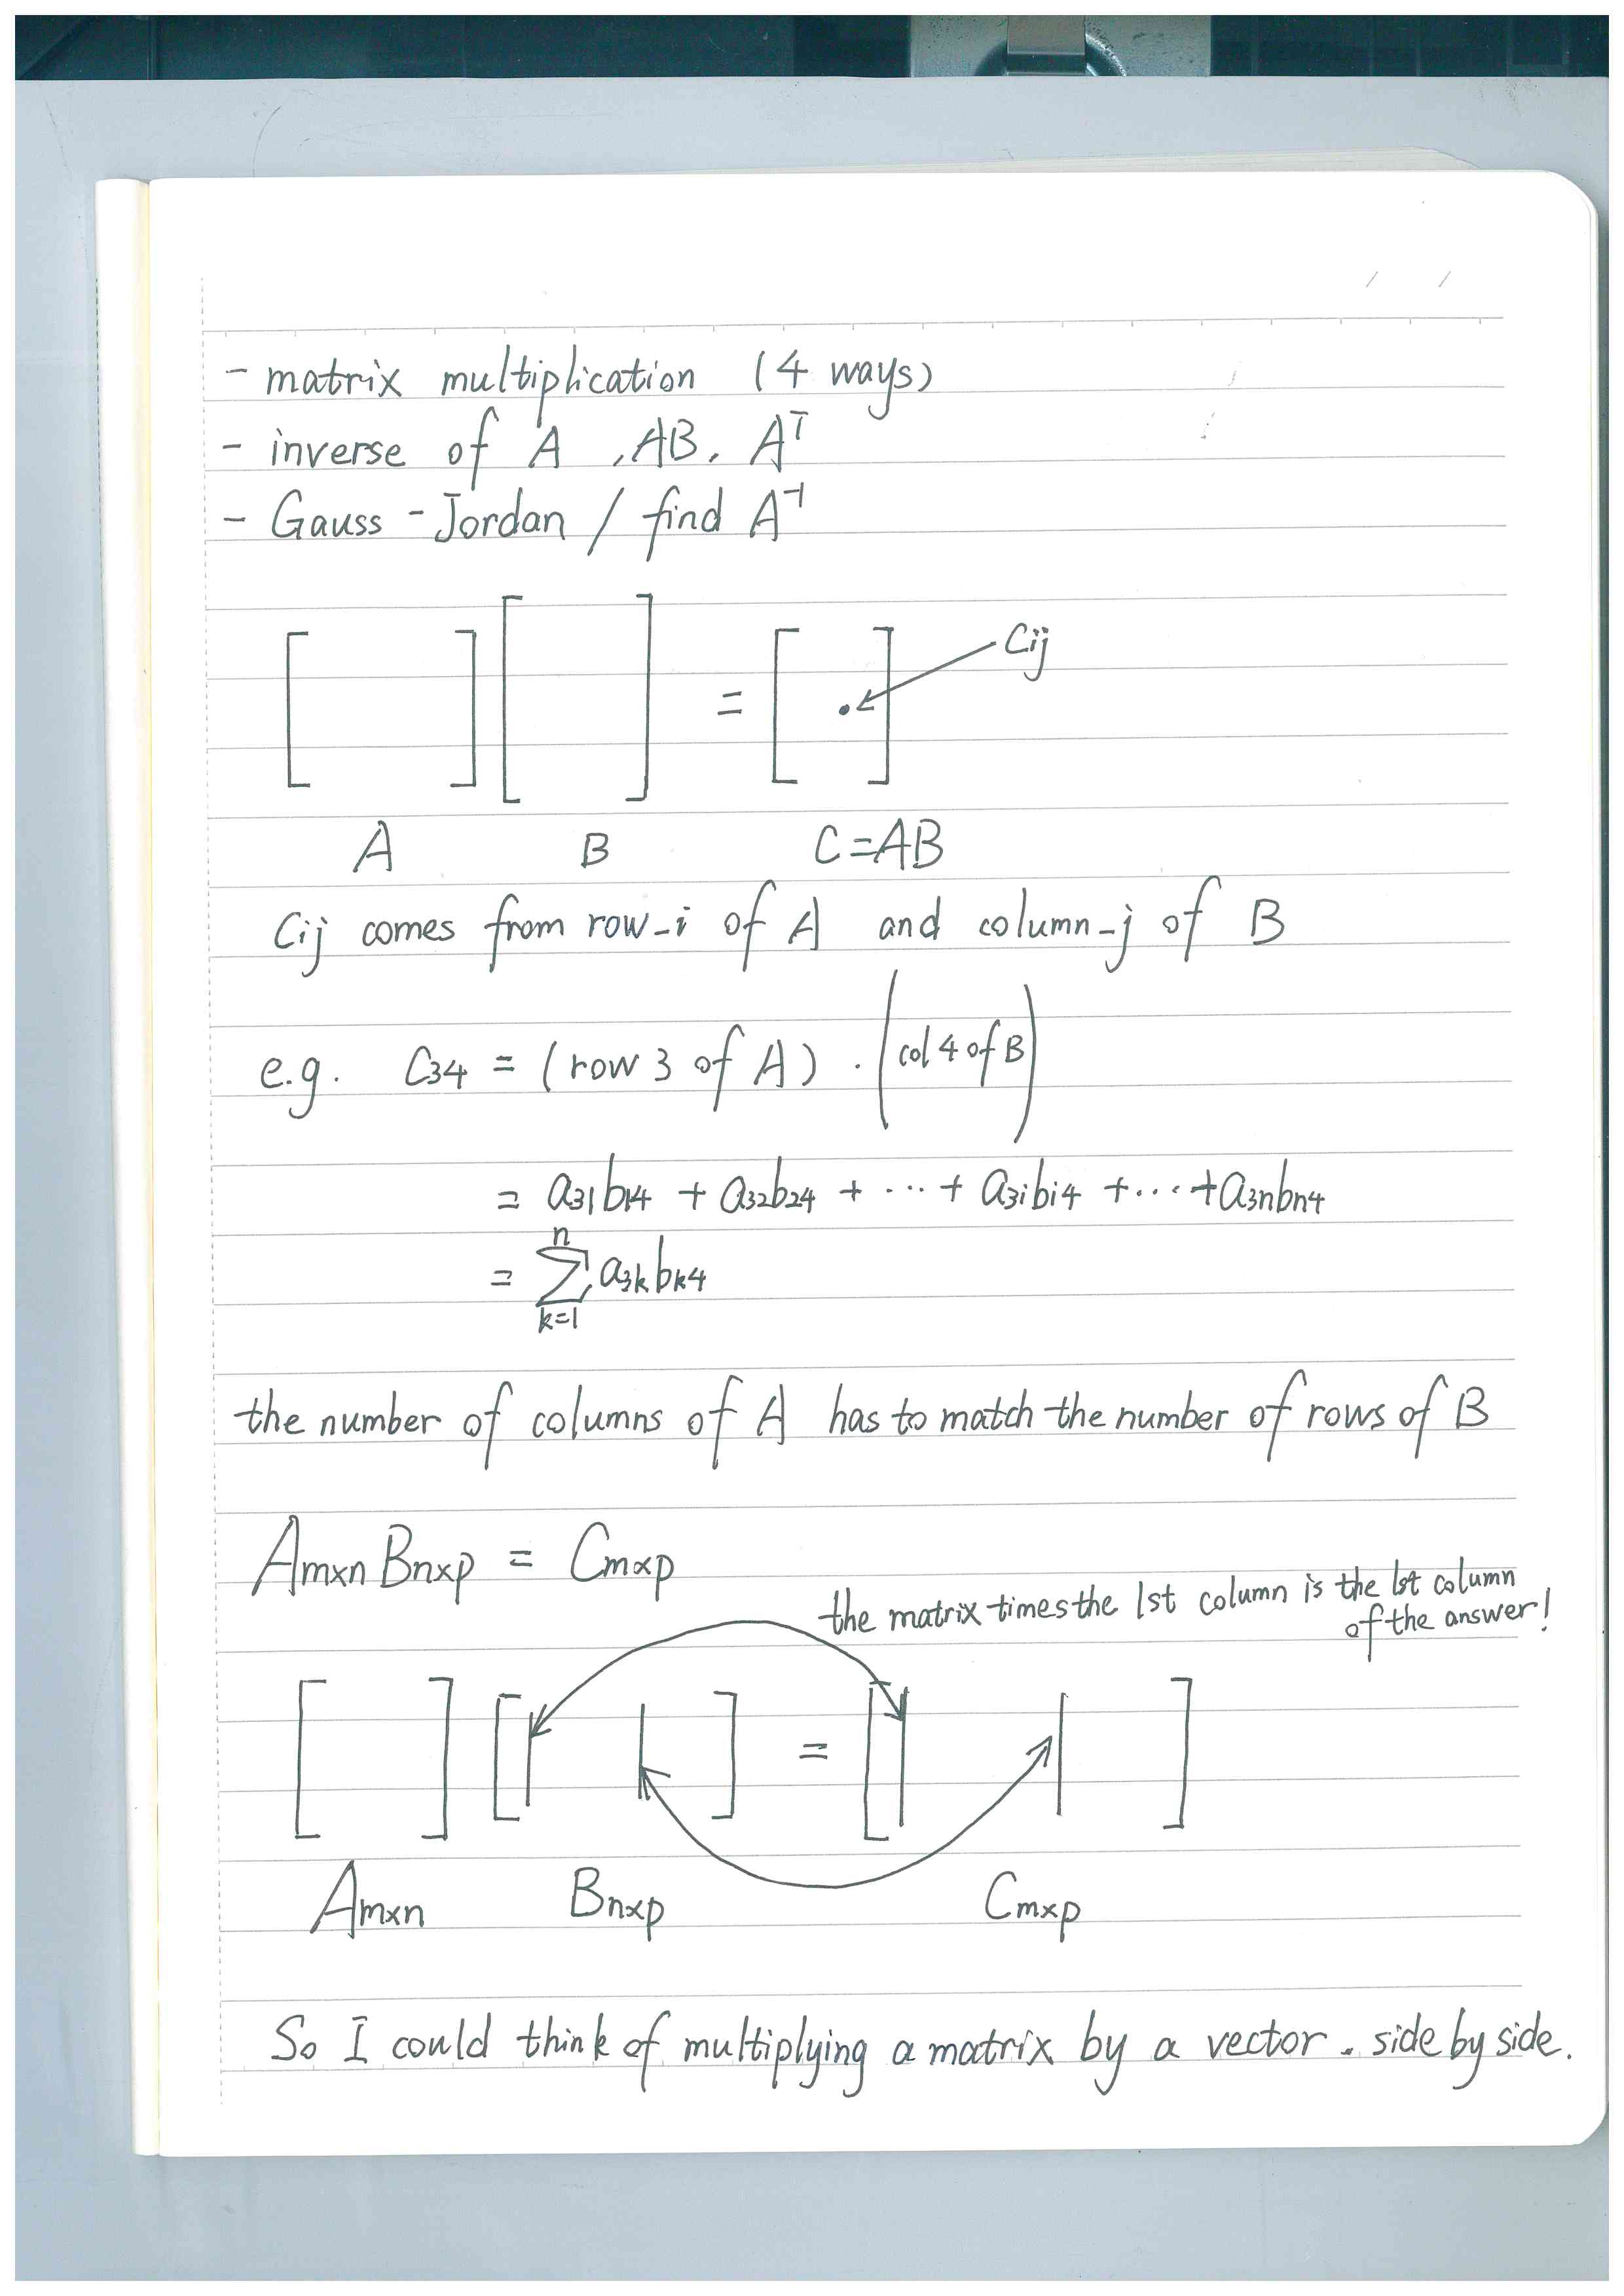 - matrix multiplication (4 ways)
- inverse of A , AB, Aᵀ
- Gauss-Jordan / find A⁻¹
[ ] [ ] = [ . ] Cij
A B C=AB
Cij comes from row-i of A and column-j of B
e.g. C34 = (row 3 of A) . (col 4 of B)
= a31b14 + a32b24 + ... + a3ibi4 + ... + a3nbn4
= ∑ⁿₖ₌₁ a3kbk4
the number of columns of A has to match the number of rows of B
Amxn Bnxp = Cmxp
the matrix times the 1st column is the 1st column
of the answer!
[ ] [| | ] = [| | ]
Amxn Bnxp Cmxp
So I could think of multiplying a matrix by a vector. side by side.